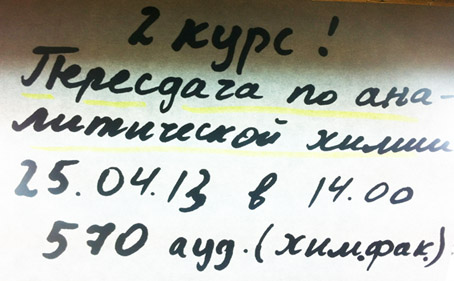 2 курс!
Пересдача по ана-
литической химии
25.04.13 в 14.00
570 ауд. (хим.фак.)